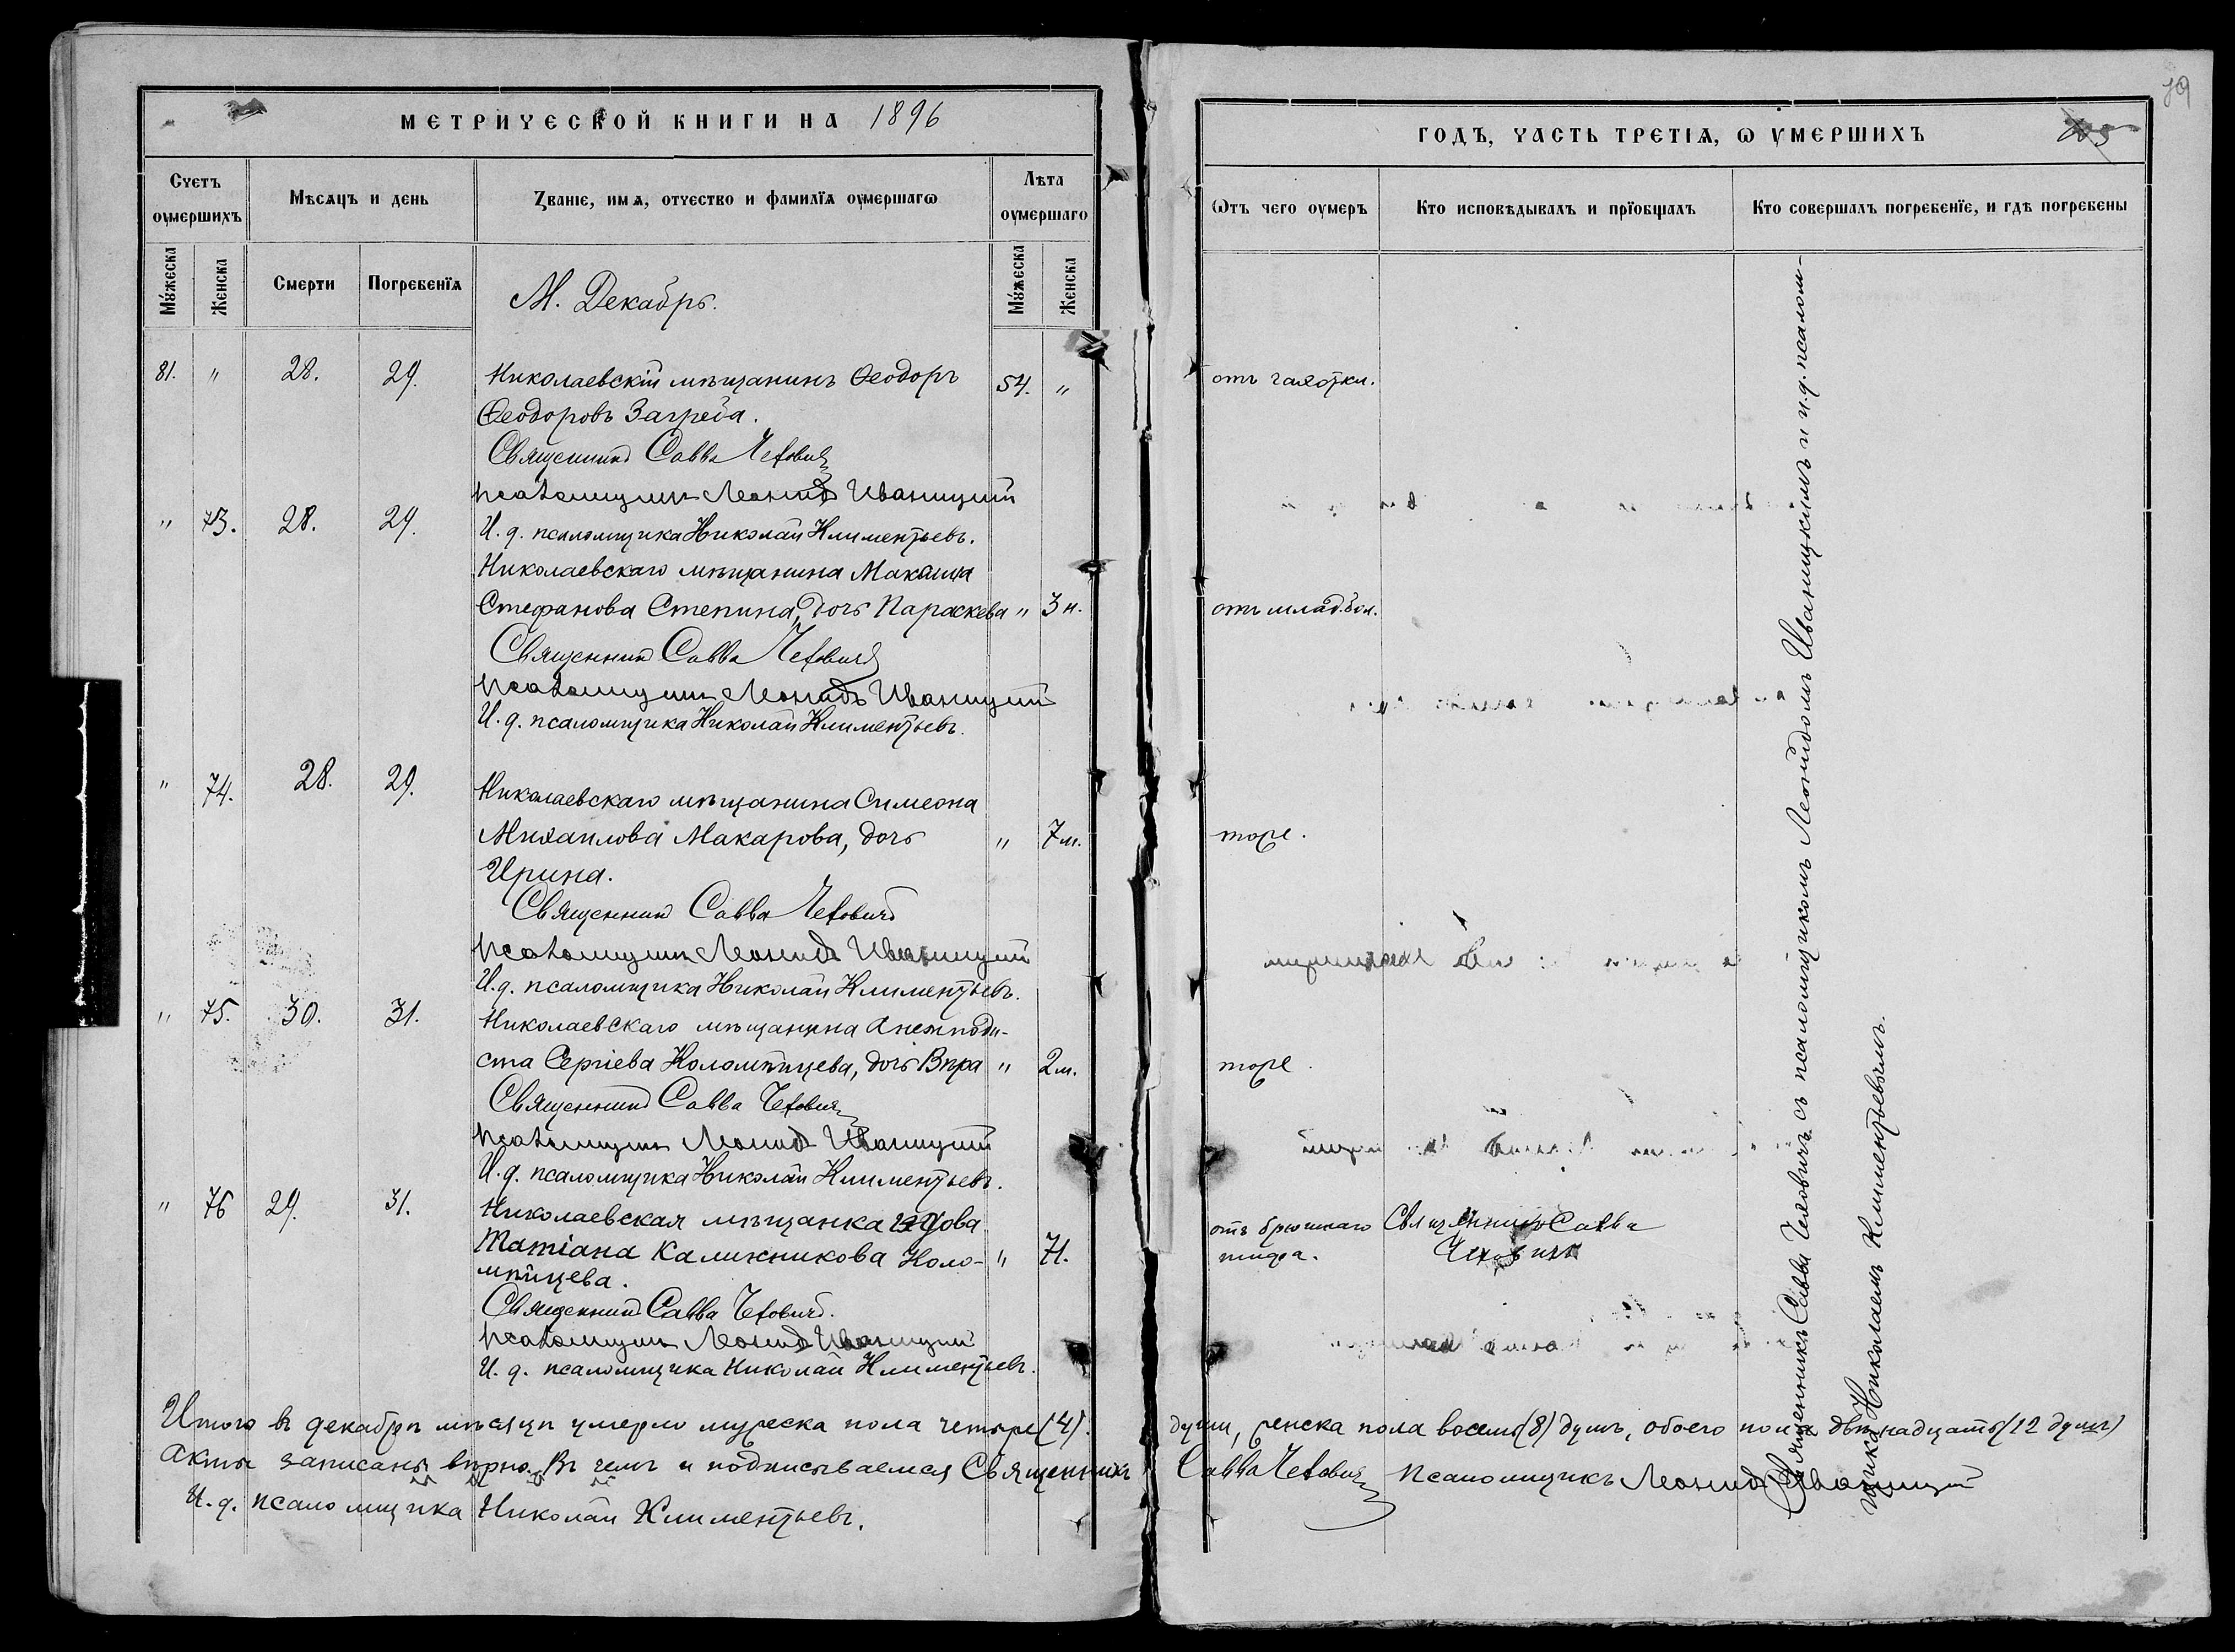 МЕТРИЧЕСКОЙ КНИГИ НА 1896
Счетъ оумершихъ
Мѣсяцъ и день
Званіе, имя, отчество и фамилїя оумершагѡ
Лѣта оумершаго
Мужеска
Женска
Смерти
Погребенїя
М. Декабрь.
Мужеска
Женска
81. " 28. 29. Николаевскій мѣщанинъ Ѳеодоръ 54. "
Ѳеодоровъ Загреба.
Священникъ Савва Чеховичъ
Псаломщикъ Леонидъ Иваницкій
" 73. 28. 29. И. д. псаломщика Николай Климентьевъ.
Николаевскаго мѣщанина
Стефанова Степина, дочь Параскева " 3 н.
Священникъ Савва Чеховичъ
Псаломщикъ Леонидъ Иваницкій
И. д. псаломщика Николай Климентьевъ.
" 74. 28. 29. Николаевскаго мѣщанина Симеона
Михаилова Макарова, дочь " 7 м.
Ирина.
Священникъ Савва Чеховичъ
Псаломщикъ Леонидъ Иваницкій
И. д. псаломщика Николай Климентьевъ.
" 75. 30. 31. Николаевскаго мѣщанина Анемподи-
ста Сергіева Коломѣйцева, дочь Вѣра " 2 м.
Священникъ Савва Чеховичъ
Псаломщикъ Леонидъ Иваницкій
И. д. псаломщика Николай Климентьевъ.
" 76 29. 31. Николаевская мѣщанка вдова
Татіана Калинникова Коло- " 71.
мѣйцева.
Священникъ Савва Чеховичъ.
Псаломщикъ Леонидъ Иваницкій
И. д. псаломщика Николай Климентьевъ.
Итого въ декабрѣ мѣсяцѣ умерло мужеска пола четыре (4)
Акты записаны вѣрно. Въ чемъ и подписываемся Священникъ
И. д. псаломщика Николай Климентьевъ.
79
ГОДЪ, ЧАСТЬ ТРЕТІЯ, Ѡ УМЕРШИХЪ
Ѿтъ чего оумеръ
Кто исповѣдывалъ и прїобщалъ
Кто совершалъ погребенїе, и гдѣ погребены
отъ чахотки.
отъ млад. бол.
тоже.
тоже.
отъ брюшнаго Священникъ Савва
тифа. Чеховичъ
Священникъ Савва Чеховичъ съ псаломщикомъ Леонидомъ Иваницкимъ и и. д. псалом-
щика Николаемъ Климентьевымъ.
души, женска пола восемь (8) душъ, обоего пола двѣнадцать (12 душъ)
Савва Чеховичъ Псаломщикъ Леонидъ Иваницкій